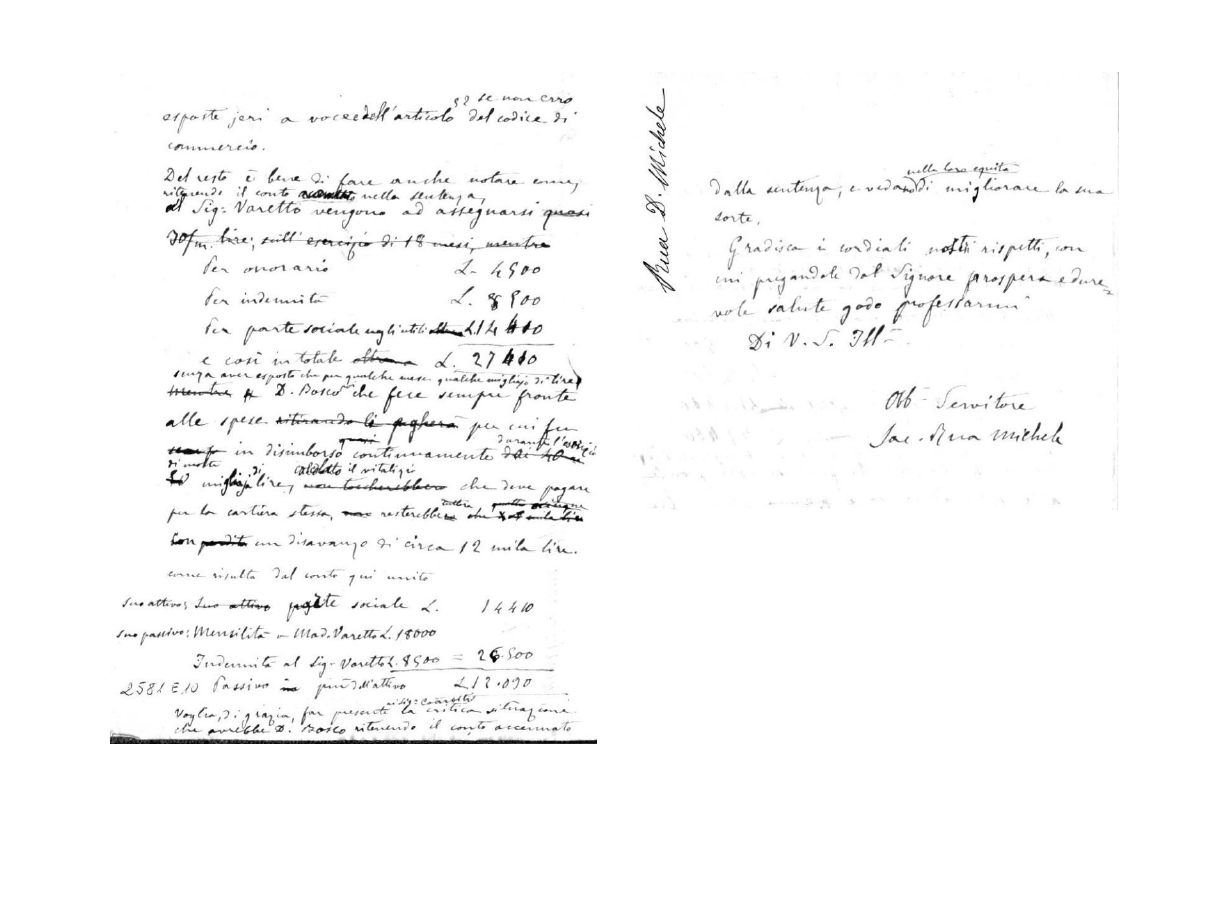 52 se non erro
esposte jeri a voce dell'articolo del codice di
commercio.
Del resto è bene di fare anche notare come,
ritenendo il conto accennato nella sentenza,
al Sig. Varetto vengono ad assegnarsi quasi
30/m. lire, sull'esercizio di 18 mesi, mentre
Per onorario L. 4500
Per indennità L. 8500
Per parte sociale negli utili L. 14410
e così in totale L. 27410
senza aver esposto che per qualche mese qualche migliajo di lire,
mentre D. Bosco che fece sempre fronte
alle spese ritirando li pagherà per cui fu
quasi durante l'esercizio
in disimborso continuamente dai 40 a
di molte di calcolato il vitalizio
50 migliaja lire, non toccherebbero che deve pagare
per la cartiera stessa, resterebbe
con perdita un disavanzo di circa 12 mila lire.
come risulta dal conto qui unito
Suo attivo: Suo attivo parte sociale L. 14410
suo passivo: Mensilità a Mad. Varetto L. 18000
Indennità al Sig. Varetto L. 8500 = 26.500
2581 E10 Passivo in più dell'attivo L 12.090
Voglia, di grazia, far presente la critica situazione
che avrebbe D. Bosco ritenendo il conto accennato
Rua D. Michele
nella loro equità
dalla sentenza, e vedano di migliorare la sua
sorte.
Gradisca i cordiali nostri rispetti, con
cui pregandole dal Signore prospera e dure=
vole salute godo professarmi
Di V. S. Ill-
Obb- Servitore
Sac. Rua Michele